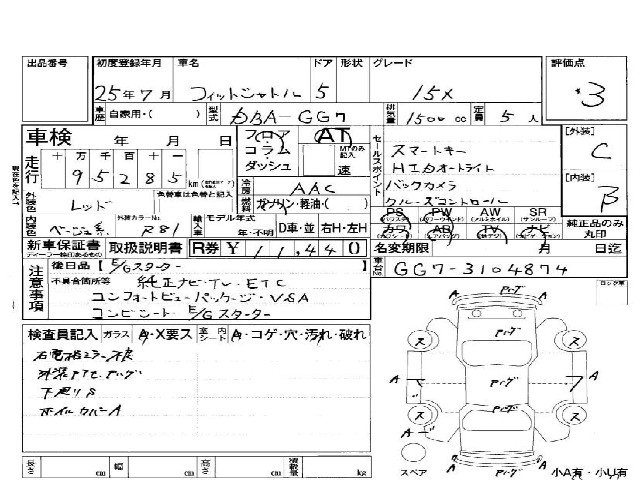 出品番号 初度登録年月 車名 ドア 形状 グレード 評価点
25年7月 フィットシャトル 5 15X 3
車歴 自家用・( ) 型式 DBA-GG7 排気量 1500 cc 定員 5 人
車検 年 月 日 フロア AT
コラム MTのみ記入
ダッシュ 速
走行 十 万 千 百 十 一
9 5 2 8 5 km
冷房 AAC
セールスポイント スマートキー
HIDオートライト
バックカメラ
クルーズコントロール
[外装] C
[内装] B
外装色 レッド 色替車は色替と記入 燃料 ガソリン・軽油・( )
内装色 ベージュ系 外装カラーNo. R81 輸入車 モデル年式 年・不明 D車・並 右H・左H
PS PW AW SR
カワ AB TV ナビ
純正品のみ丸印
新車保証書 取扱説明書 R券 ¥ 11,440 名変期限 月 日迄
ディーラー捺印あるもの
車台No. GG7-3104874
注意事項 後日品【E/Gスターター 】
不具合箇所等 純正ナビ・TV・ETC
コンフォートビューパッケージ・VSA
コンビシート E/Gスターター
検査員記入 ガラス A・X要ス 室内シート A・コゲ・穴・汚れ・破れ
下廻りS
ホイルカバーA
ロック車
スペア 小A有・小U有
長さ cm 幅 cm 高さ cm 積載量 kg